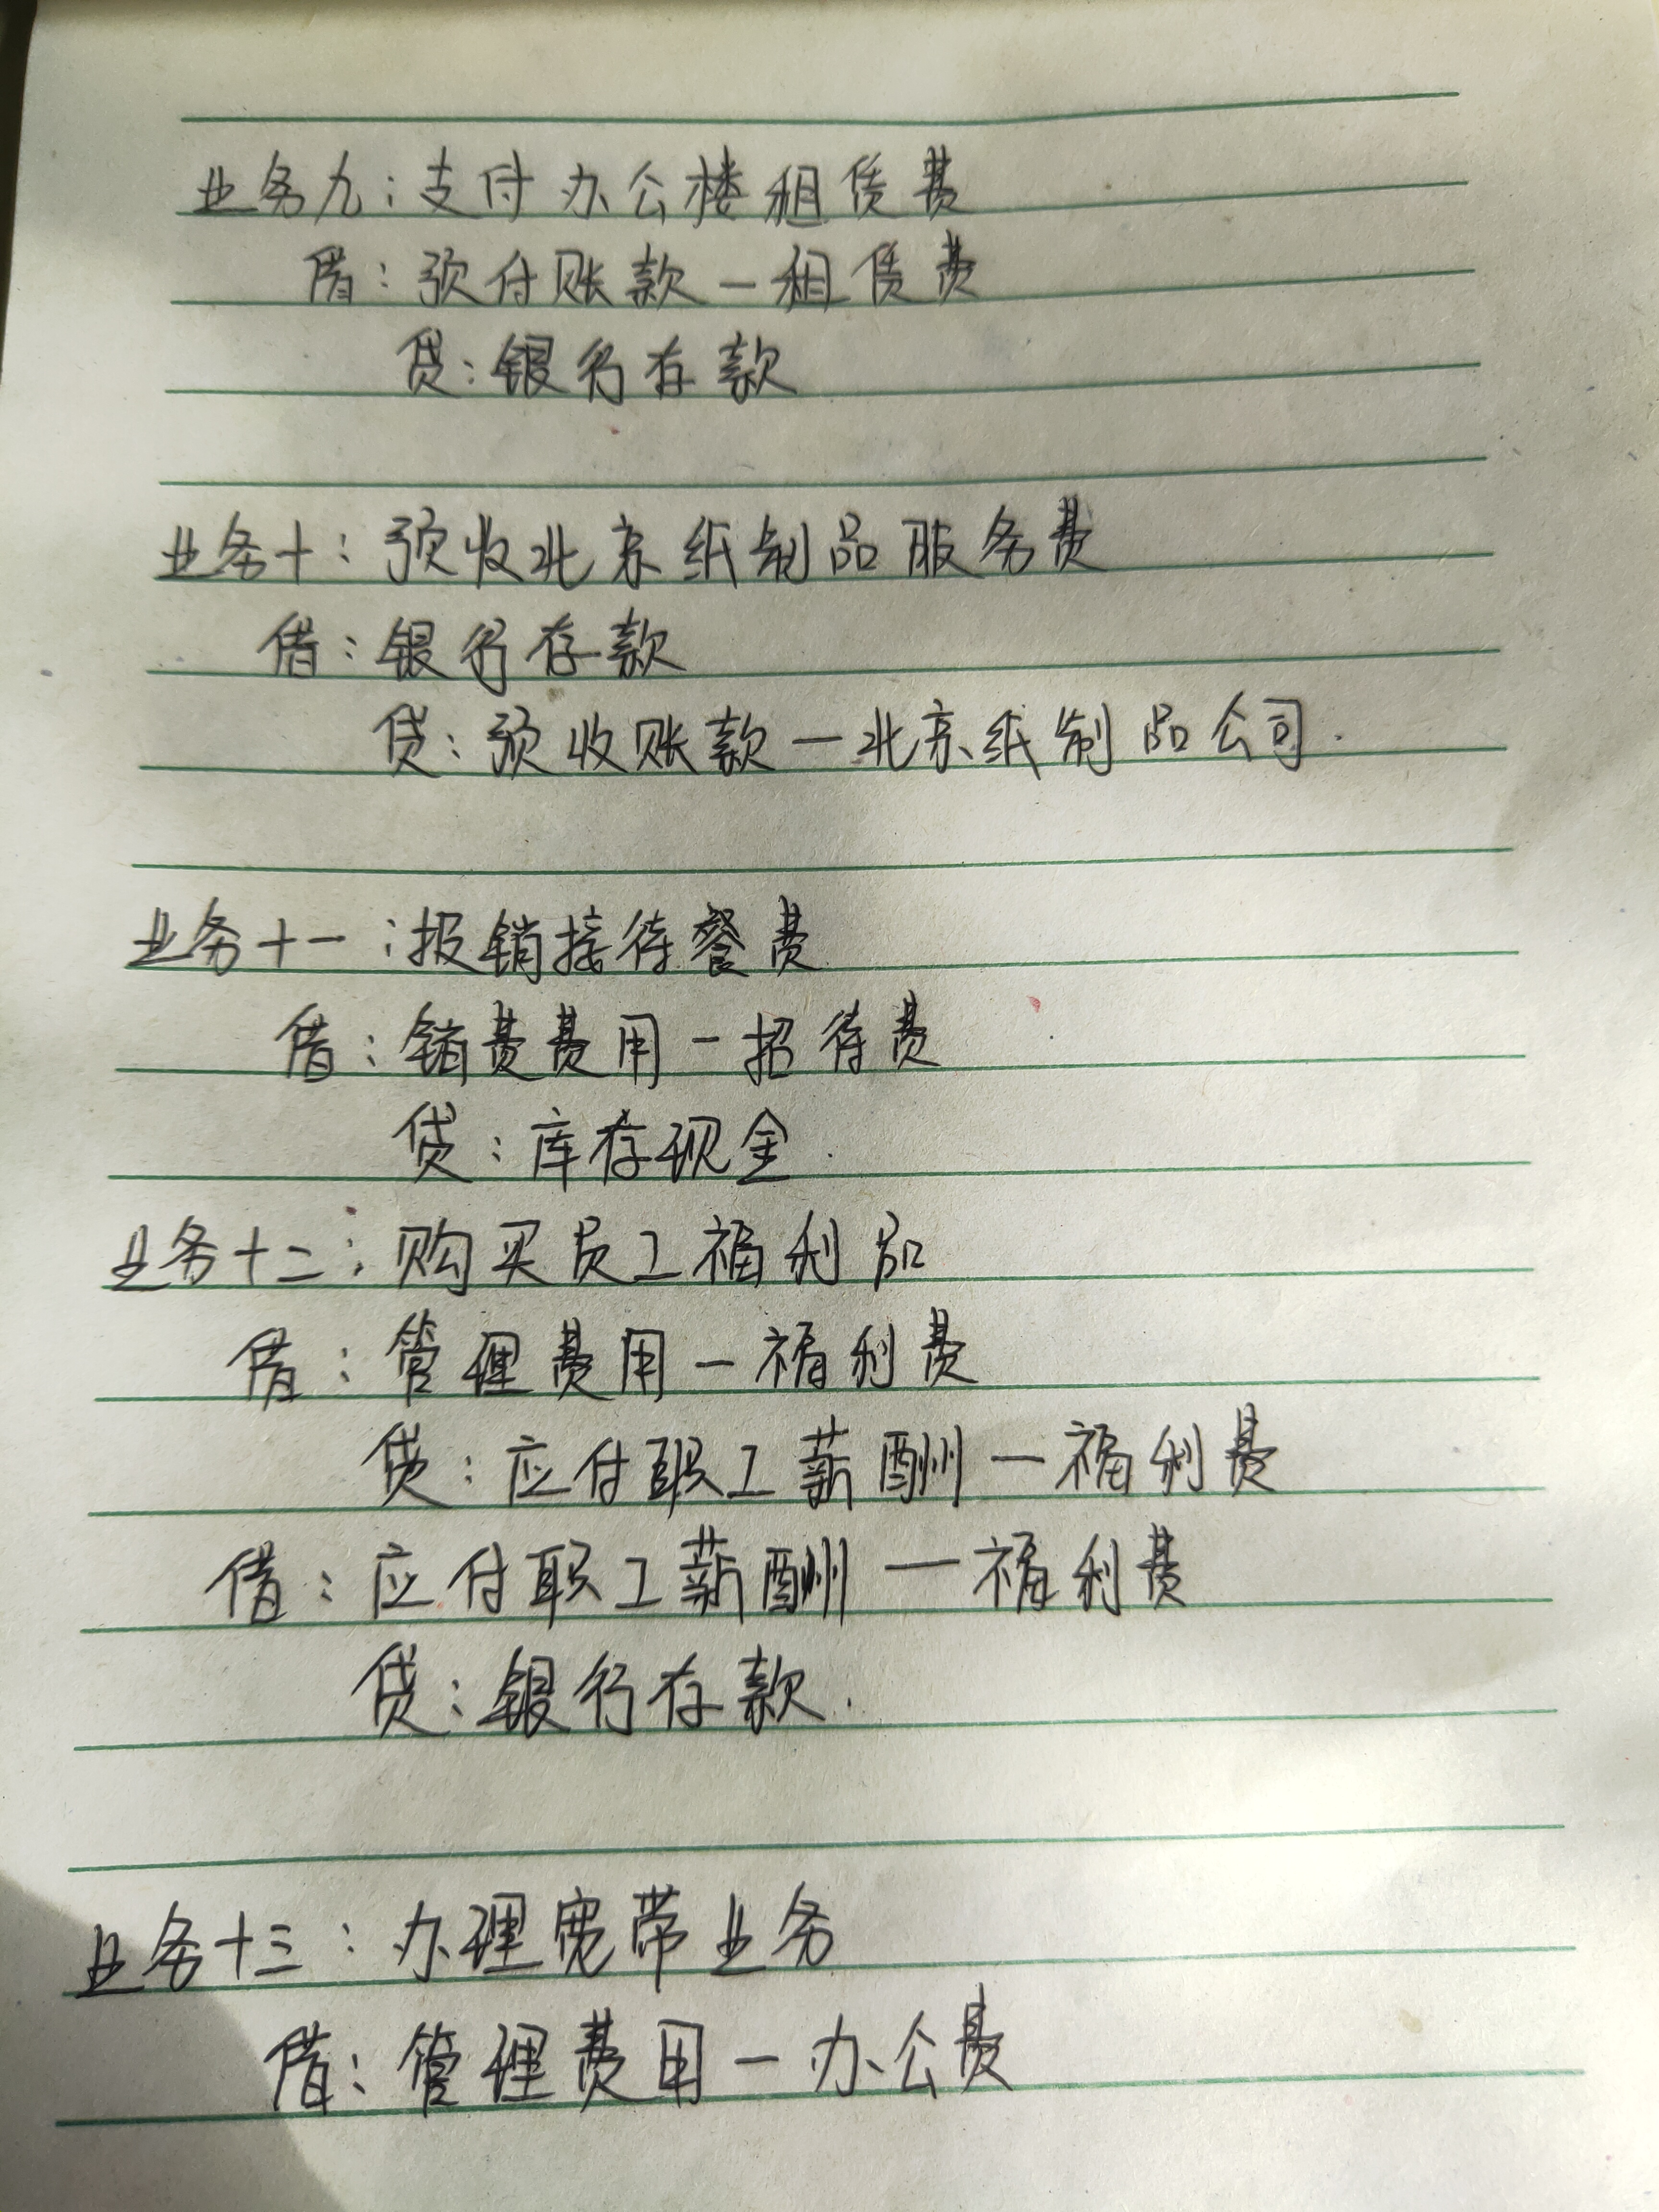 业务九：支付办公楼租赁费
借：预付账款—租赁费
贷：银行存款
业务十：预收北京纸制品服务费
借：银行存款
贷：预收账款—北京纸制品公司.
业务十一：报销接待餐费
借：销费费用—招待费
贷：库存现金.
业务十二：购买员工福利品
借：管理费用—福利费
贷：应付职工薪酬—福利费
借：应付职工薪酬—福利费
贷：银行存款.
业务十三：办理宽带业务
借：管理费用—办公费